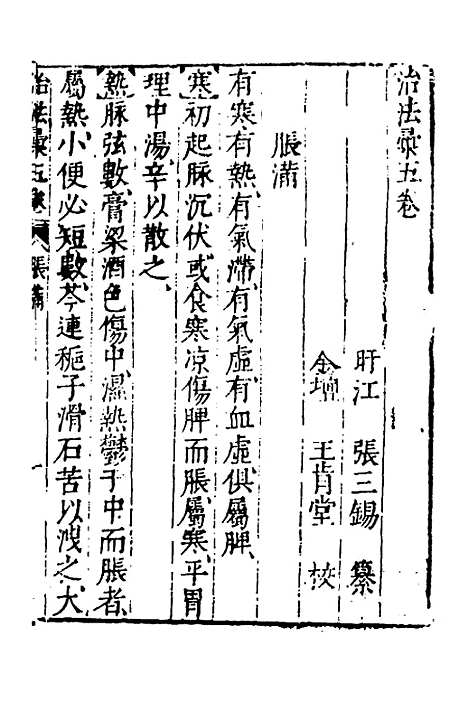 治法彚五卷
盱江 張三錫 纂
金壇 王肯堂 校
脹滿
有寒、有熱、有氣滯、有氣虛、有血虛、俱屬脾、
寒初起脉沉伏、或食寒凉傷脾而脹、屬寒、平胃
理中湯、辛以散之、
熱脉弦數、膏梁酒色傷中、濕熱鬱于中而脹者、
屬熱、小便必短數、芩連梔子滑石苦以洩之、大
治法彚五卷 脹滿 一